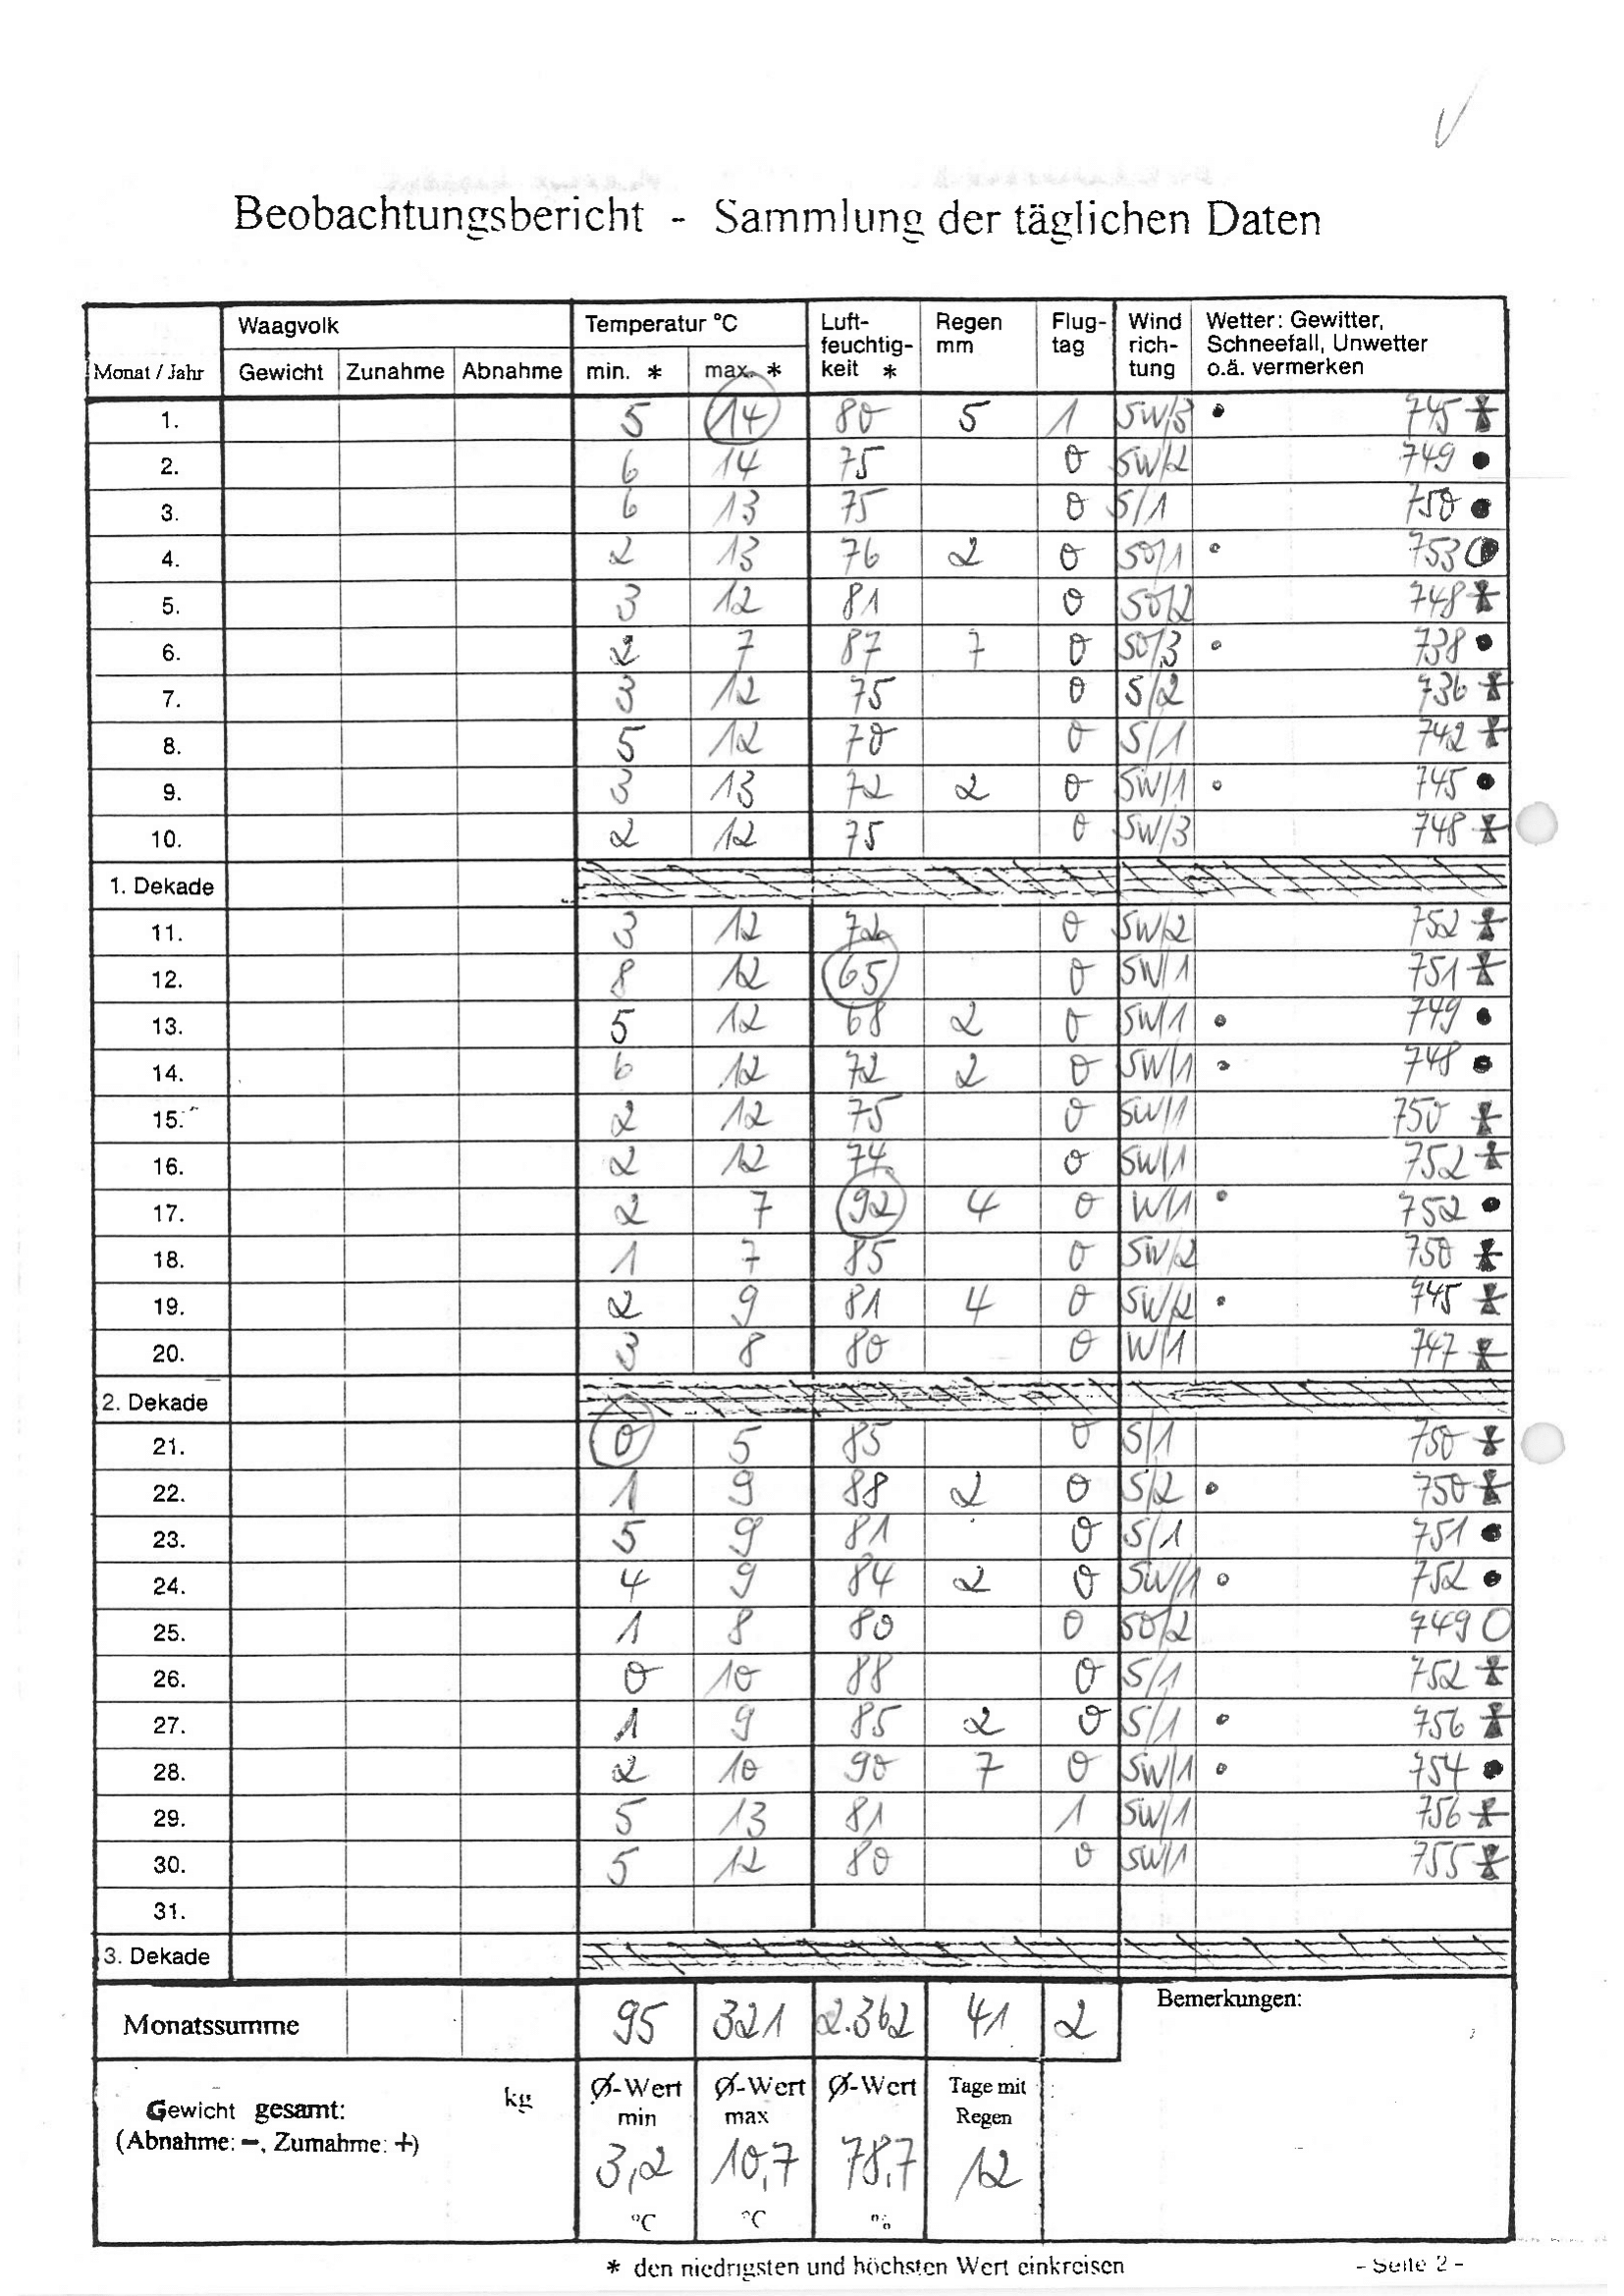 Beobachtungsbericht - Sammlung der täglichen Daten
Monat / Jahr Waagvolk Temperatur °C Luft- Regen Flug- Wind Wetter: Gewitter,
feuchtig- mm tag rich- Schneefall, Unwetter
Gewicht Zunahme Abnahme min. * max. * keit * tung o.ä. vermerken
1. 5 14 80 5 1 SW/3 745
2. 6 14 75 0 SW/2 749
3. 6 13 75 0 S/1 750
4. 2 13 76 2 0 SO/1 753
5. 3 12 81 0 SO/2 748
6. 2 7 87 7 0 SO/3 738
7. 3 12 75 0 S/2 736
8. 5 12 70 0 S/1 742
9. 3 13 72 2 0 SW/1 745
10. 2 12 75 0 SW/3 748
1. Dekade
11. 3 12 72 0 SW/2 752
12. 8 12 65 0 SW/1 751
13. 5 12 68 2 0 SW/1 749
14. 6 12 72 2 0 SW/1 748
15. 2 12 75 0 SW/1 750
16. 2 12 74 0 SW/1 752
17. 2 7 92 4 0 W/1 752
18. 1 7 85 0 SW/2 750
19. 2 9 81 4 0 SW/2 745
20. 3 8 80 0 W/1 747
2. Dekade
21. 0 5 85 0 S/1 750
22. 1 9 88 2 0 S/2 750
23. 5 9 81 0 S/1 751
24. 4 9 84 2 0 SW/1 752
25. 1 8 80 0 SO/2 749
26. 0 10 88 0 S/1 752
27. 1 9 85 2 0 S/1 756
28. 2 10 90 7 0 SW/1 754
29. 5 13 81 1 SW/1 756
30. 5 12 80 0 SW/1 755
31.
3. Dekade
Monatssumme 95 321 2.362 41 2 Bemerkungen:
Gewicht gesamt: kg Ø-Wert Ø-Wert Ø-Wert Tage mit
(Abnahme: -, Zumahme: +) min max Regen
3,2 10,7 78,7 12
°C °C %
* den niedrigsten und höchsten Wert einkreisen - Seite 2 -